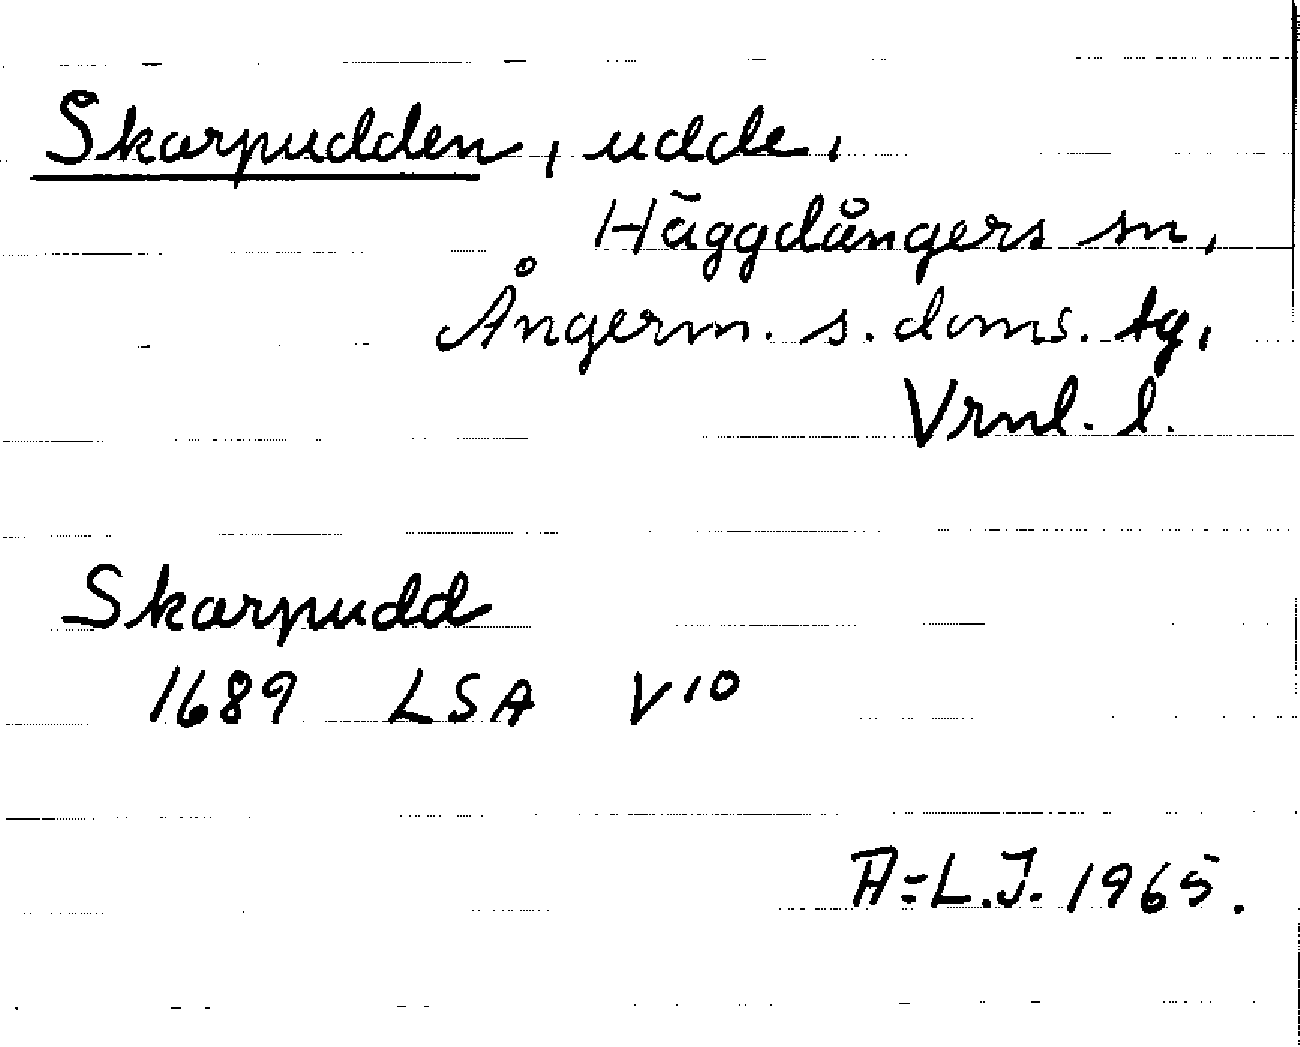 Skarpudden, udde,
Häggdångers sn,
Ångerm. s. doms. tg,
Vrnl. l.
Skarpudd
1689 LSA V10
A-L.J. 1965.